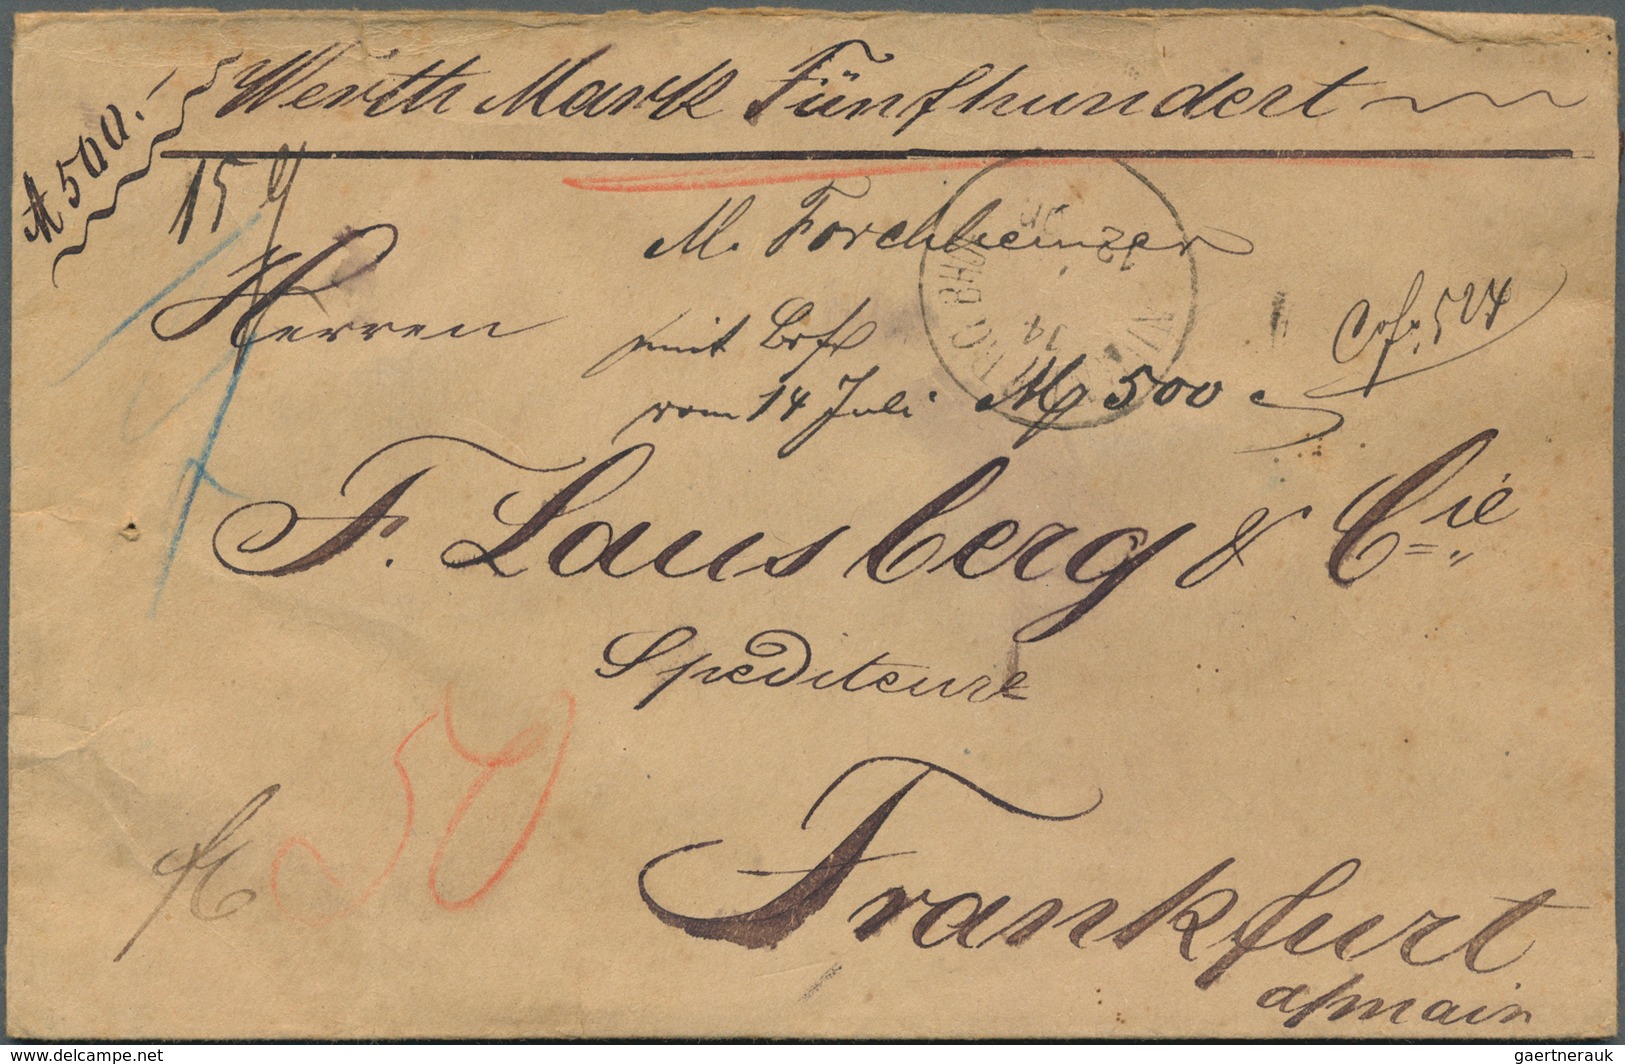 Werth Mark Fünfhundert
M 500.
15 g
M. Forchheimer
Herren
mit Brf
vom 14 Juli M 500
Cof. 524
F. Lausberg & Cie
Spediteure
50
Frankfurt
a/main
NÜRNBERG BHOF
14
12
gaertnerauk